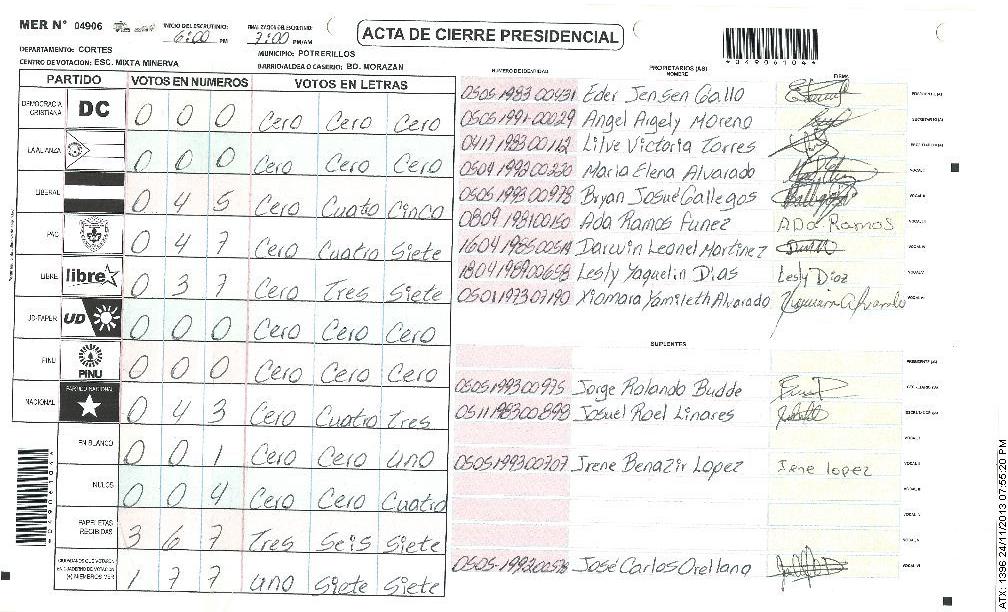 MER N° 04906 INICIO DEL ESCRUTINIO: 6:00 PM FINALIZACION DEL ESCRUTINIO: 7:00 PM/AM
ACTA DE CIERRE PRESIDENCIAL
DEPARTAMENTO: CORTES MUNICIPIO: POTRERILLOS
CENTRO DE VOTACION: ESC. MIXTA MINERVA BARRIO/ALDEA O CASERIO: BO. MORAZAN
PARTIDO VOTOS EN NUMEROS VOTOS EN LETRAS
DEMOCRACIA CRISTIANA DC 0 0 0 Cero Cero Cero
LA ALIANZA 0 0 0 Cero Cero Cero
LIBERAL 0 4 5 Cero Cuatro Cinco
PAC 0 4 7 Cero Cuatro Siete
LIBRE libre 0 3 7 Cero Tres Siete
UD-FAPER UD 0 0 0 Cero Cero Cero
PINU PINU 0 0 0 Cero Cero Cero
NACIONAL PARTIDO NACIONAL 0 4 3 Cero Cuatro Tres
EN BLANCO 0 0 1 Cero Cero uno
NULOS 0 0 4 Cero Cero Cuatro
PAPELETAS RECIBIDAS 3 6 7 Tres Seis Siete
CIUDADANOS QUE VOTARON EN CUADERNO DE VOTACION (+) MIEMBROS MER 1 7 7 uno Siete Siete
NUMERO DE IDENTIDAD PROPIETARIOS (AS) NOMBRE FIRMA
0505198300431 Eder Jensen Gallo PRESIDENTE (A)
0505-1991-00029 Angel Argely Moreno SECRETARIO (A)
0417198300142 Lilve Victoria Torres ESCRUTADOR (A)
0504199200330 Maria Elena Alvarado VOCAL I
0505199200978 Bryan Josué Gallegos VOCAL II
0809198100150 Ada Ramos Funez ADa Ramos VOCAL III
1604198500514 Darwin Leonel Martinez VOCAL IV
1804198900658 Lesly Yaquelin Dias Lesly Díaz VOCAL V
0501197307190 Xiomara Yamileth Alvarado VOCAL VI
SUPLENTES
PRESIDENTE (A)
0505199300975 Jorge Rolando Budde SECRETARIO (A)
0511198300898 Josuel Roel Linares ESCRUTADOR (A)
VOCAL I
0505199300707 Irene Benazir Lopez Irene lopez VOCAL II
VOCAL III
VOCAL IV
VOCAL V
José Carlos Orellana VOCAL VI
*04906104*
*04906104*
ATX: 1396 24/11/2013 07:55:20 PM